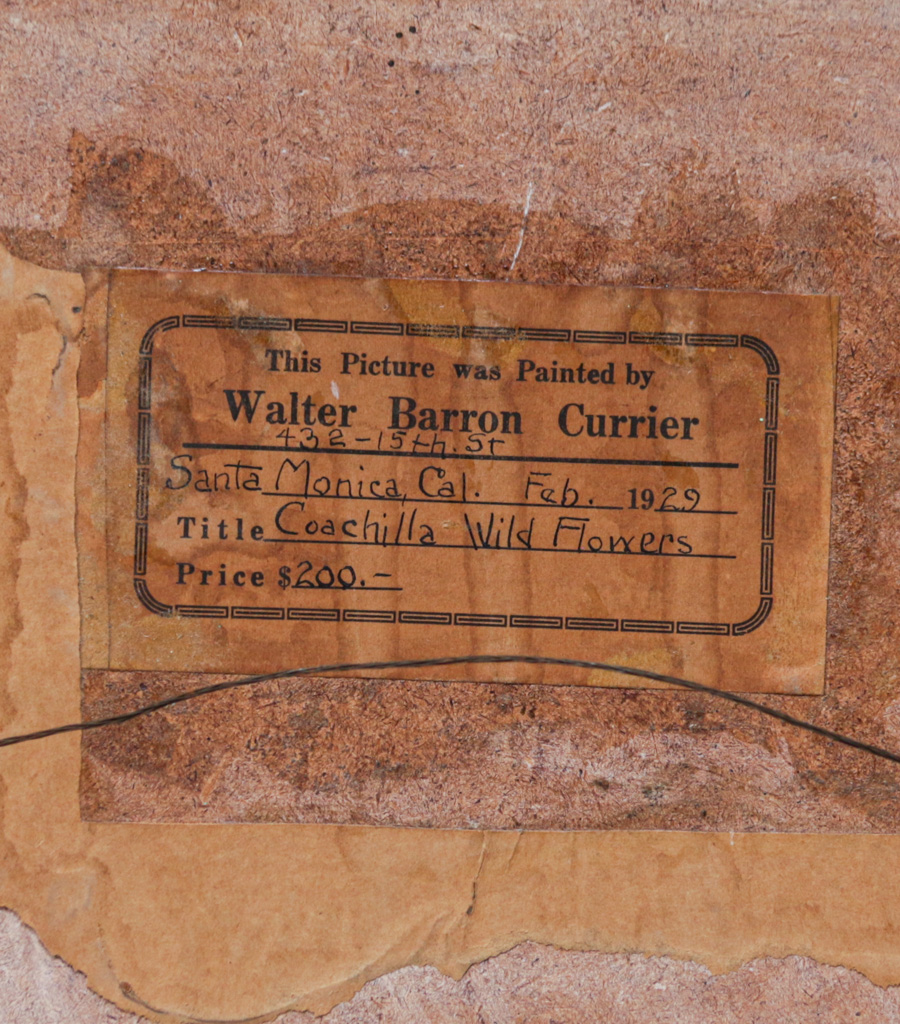 This Picture was Painted by
Walter Barron Currier
432-15th. St
Santa Monica, Cal. Feb. 1929
Title Coachilla Wild Flowers
Price $200.-